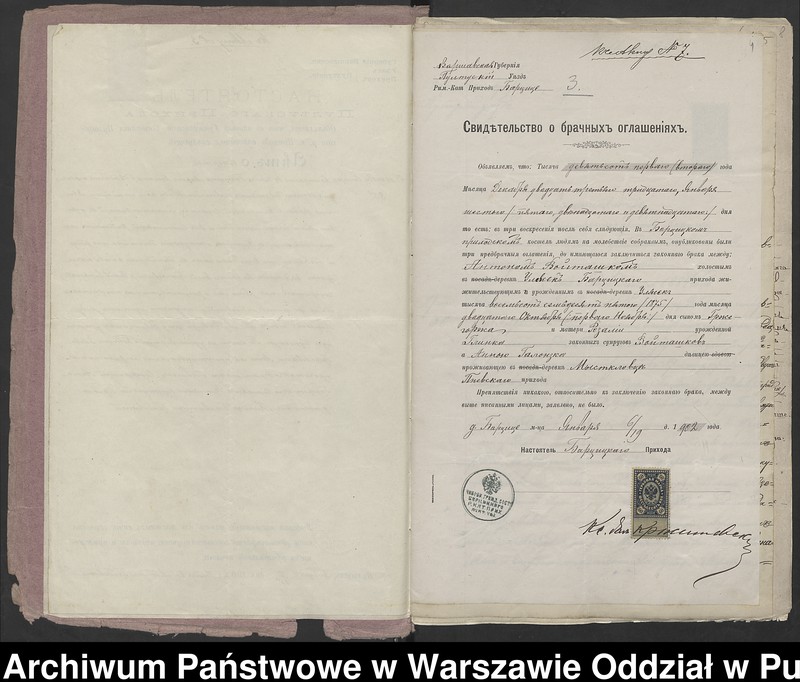 къ акту № 7.
Варшавская Губернія
Пултускій Уѣздъ
Рим.-Кат Приходъ Барцице 3.
Свидѣтельство о брачныхъ оглашеніяхъ.
Объявляемъ, что: Тысяча девятьсотъ перваго (втораго) года
Мѣсяца Декабря двадцать третьяго тридцатаго, Января
шестого/ пятаго, двѣнадцатаго и девятнадцатаго/ дня
то есть: въ три воскресенія послѣ себя слѣдующія. Въ Барцицкомъ
приходскомъ костелѣ людямъ на молебствіе собраннымъ, опубликованы были
три предбрачныя оглашенія, до имѣющагося заключиться законнаго брака между:
Антономъ Войташкомъ холостымъ
въ посадѣ-деревнѣ Барцицкаго прихода жи-
жительствующимъ и урожденнымъ въ посадѣ-деревнѣ
тысяча восемьсотъ семьдесятъ пятого /1875/ года мѣсяца
двадцатаго Октября/ перваго Ноября/ дня сыномъ Грже-
горжа и матери Розаліи урожденной
Глинка законныхъ супруговъ Войташковъ
и Анною Галонзка дѣвицею
проживающею въ посадѣ-деревнѣ Мыстковецъ
Пневскаго прихода
Препятствія никакого, относительно къ заключенію законнаго брака, между
выше поименными лицами, заявлено, не было.
д. Барцице м-ца Января 6/19 д. 1902 года.
Настоятель Барцицкаго Прихода
Кс.
Archiwum Państwowe w Warszawie Oddział w Pu